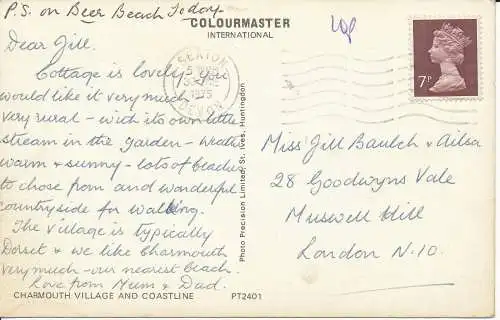 P.S. on Beer Beach Today
COLOURMASTER
INTERNATIONAL
10p
Dear Jill.
Cottage is lovely, you
would like it very much
very rural - with its own little
stream in the garden - weather
warm & sunny - lots of beaches
to chose from and wonderful
countryside for walking.
The village is typically
Dorset & we like Charmouth
very much - our nearest beach.
Love from Mum & Dad.
CHARMOUTH VILLAGE AND COASTLINE PT2401
Photo Precision Limited, St. Ives, Huntingdon
SEATON
1975
DEVON
7P
Miss Jill Baulch & Ailsa
28 Goodwyns Vale
Muswell Hill
London N.10.